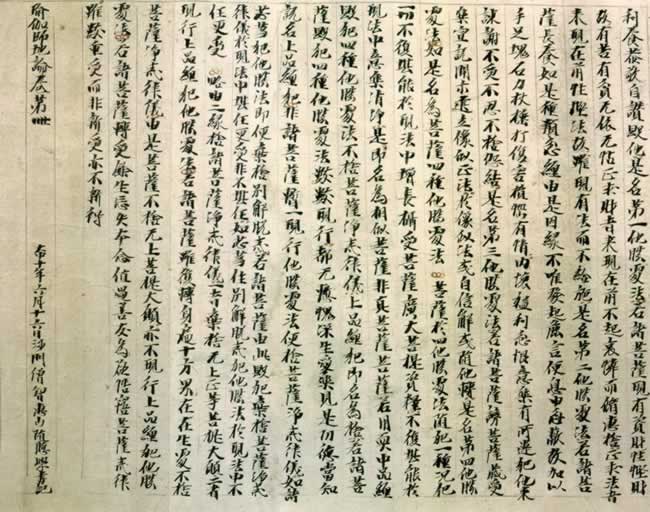 利養恭敬自讚毀他是名第一他勝處法若諸菩薩現有資財性慳財
故有苦有貧无依无怙正求財者來現在前不起哀憐而脩惠捨正求法者
來現在前性慳法故雖現有法而不捨施是名第二他勝處法若諸菩
薩長養如是種類忿纏由是因緣不唯發起麁言便息由忿蔽故加以
手足塊石刀杖捶打傷害損惱有情內懷猛利忿恨意樂有所違犯他來
諫謝不受不忍不捨怨結是名第三他勝處法若諸菩薩謗菩薩藏愛
樂宣說開示建立像似正法於像似法或自信解或隨他轉是名第四他勝
處法如是名為菩薩四種他勝處法 菩薩於四他勝處法隨犯一種況犯
一切不復堪能於現法中增長攝受菩薩廣大菩提資糧不復堪能於
現法中意樂清淨是即名為相似菩薩非真菩薩菩薩若用耎中品纏
毀犯四種他勝處法不捨菩薩淨戒律儀上品纏犯即名為捨若諸菩
薩毀犯四種他勝處法數數現行都无慚愧深生愛樂見是功德當知
說名上品纏犯非諸菩薩暫一現行他勝處法便捨菩薩淨戒律儀如諸
苾芻犯他勝法即便棄捨別解脫戒若諸菩薩由此毀犯棄捨菩薩淨戒
律儀於現法中堪任更受非不堪任如苾芻住別解脫戒犯他勝法於現法中不
任更受 略由二緣捨諸菩薩淨戒律儀一者棄捨无上正等菩提大願二者
現行上品纏犯他勝處法若諸菩薩雖復轉身遍十方界在在生處不捨
菩薩淨戒律儀由是菩薩不捨无上菩提大願亦不現行上品纏犯他勝
處法若諸菩薩轉受餘生忘失本念值遇善友為欲悟菩薩戒
雖數重受而非新受亦不新得
瑜伽師地論卷第卌
十年六月十六日沙門僧智惠山隨聽學書記